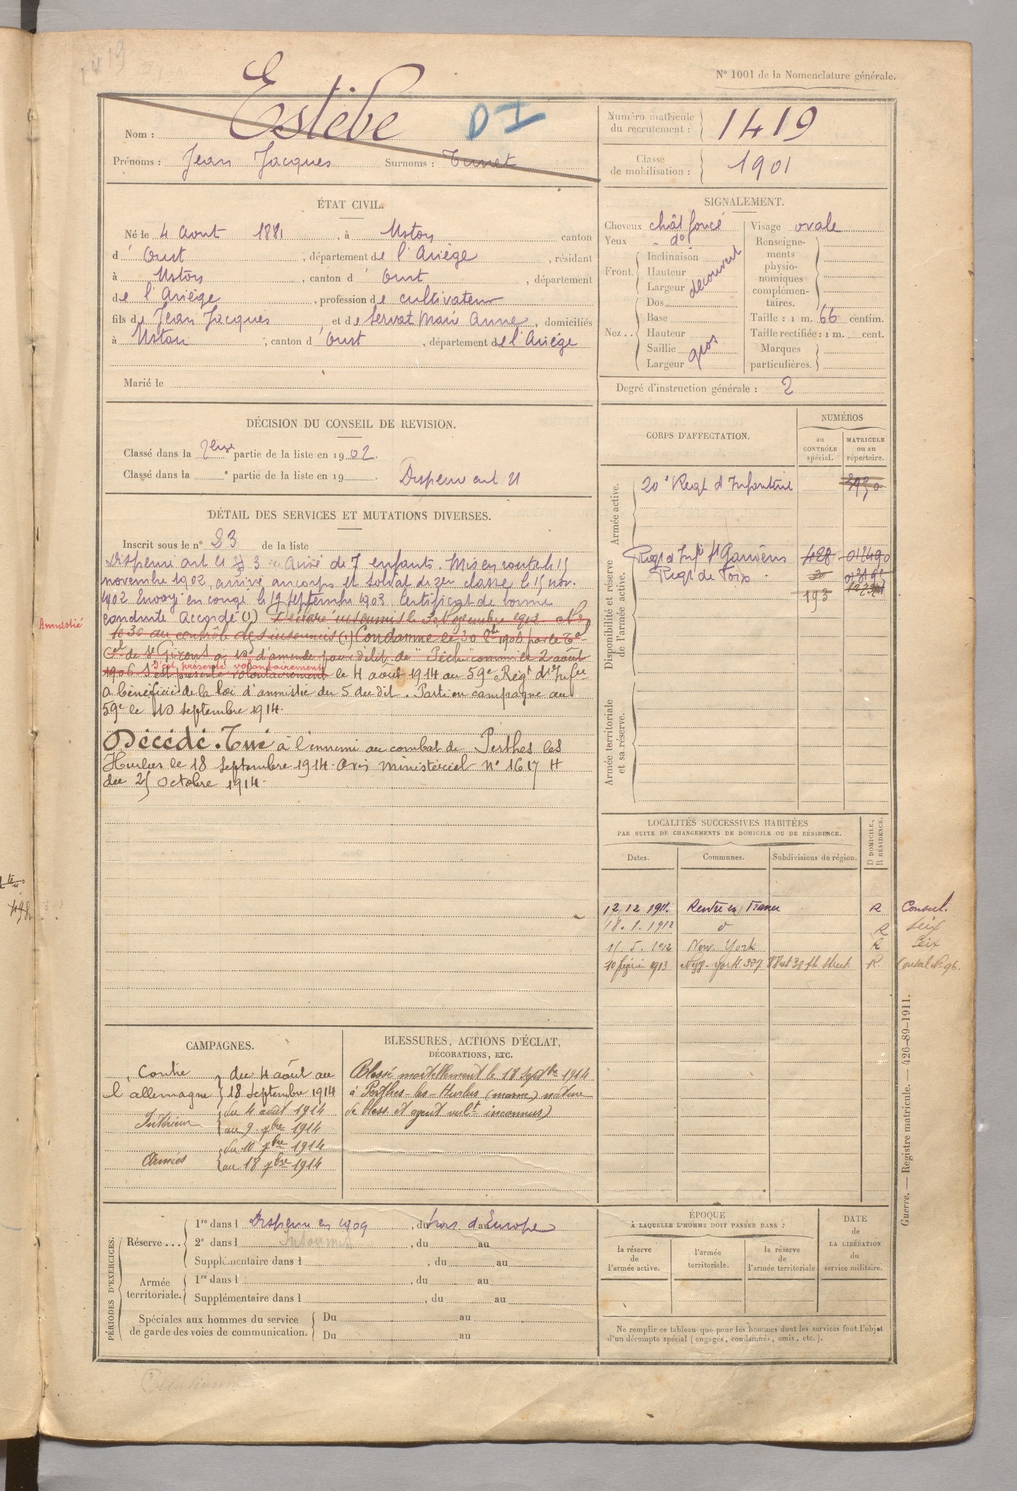 N° 1001 de la Nomenclature générale.
1419
Nom : Estèbe
DI
Prénoms : Jean Jacques Surnoms :
Numéro matricule du recrutement : 1419
Classe de mobilisation : 1901
ÉTAT CIVIL.
Né le 4 Aout 1881, à Ustou canton
d' Oust, département de l'Ariège, résidant
à Ustou, canton d' Oust, département
de l'Ariège, profession de cultivateur
fils de Jean Jacques et de Servat Marie Anne, domiciliés
à Ustou, canton d' Oust, département de l'Ariège
Marié le
SIGNALEMENT.
Cheveux chât foncé Visage ovale
Yeux d°
Front. Inclinaison Hauteur Largeur découvert
Nez.. Dos Base Hauteur Saillie Largeur gros
Renseignements physionomiques complémentaires.
Taille : 1 m. 66 centim.
Taille rectifiée : 1 m. cent.
Marques particulières.
Degré d'instruction générale : 2
DÉCISION DU CONSEIL DE REVISION.
Classé dans la partie de la liste en 1902.
Classé dans la e partie de la liste en 19
Dispensé art 21
DÉTAIL DES SERVICES ET MUTATIONS DIVERSES.
Inscrit sous le n° 23 de la liste
Dispensé art 21 Ainé de 7 enfants. Mis en route le 15
novembre 1902, arrivé au corps et soldat de 2eme classe le 15 nov.
1902. Envoyé en congé le 19 septembre 1903. Certificat de bonne
conduite Accordé (1) Déclaré insoumis le
Amnestié
1030 au contrôle des insoumis (1) Condamné le 30 8bre 1906 par le
de St Girons à d'amende pour délit de "Pêche" commis le 2 août
1906 S'est présenté volontairement
S'est présenté volontairement le 4 août 1914 au 59e Régt d'Infie
a bénéficié de la loi d'amnistie du 5 du dit. Parti en campagne au
59e le 10 septembre 1914.
Décédé. Tué à l'ennemi au combat de Perthes les
Hurlus le 18 Septembre 1914. Avis ministériel N° 1617 H
du 25 octobre 1914.
CORPS D'AFFECTATION.
NUMÉROS
au CONTRÔLE spécial.
MATRICULE ou au répertoire.
Armée active.
20e Régt d'Infanterie
Disponibilité et réserve de l'armée active.
Régt d'Infie St Gaudens 428
Régt de Foix.
193
Armée territoriale et sa réserve.
LOCALITÉS SUCCESSIVES HABITÉES
PAR SUITE DE CHANGEMENTS DE DOMICILE OU DE RÉSIDENCE.
Dates. Communes. Subdivisions de région. D DOMICILE, R RÉSIDENCE.
12.12.1911. Rentré en France R Consul.
18.1.1912 d° R Seix
11.5.1912 New York R Seix
10 février 1913 New-york 337 West 38 th Street R. Consul N° 96.
CAMPAGNES.
Contre l'allemagne du 4 août au 18 septembre 1914
Intérieur du 4 août 1914 au 9 7bre 1914
Armées du 10 7bre 1914 au 18 7bre 1914
BLESSURES, ACTIONS D'ÉCLAT,
DÉCORATIONS, ETC.
Blessé mortellement le 18 Septbre 1914
à Perthes-les-Hurlus (marne) nature
de bless. et agent vulnt inconnus)
PÉRIODES D'EXERCICES.
Réserve... 1re dans l Dispensé en 1909, du hors d'Europe
2e dans l Insoumis, du au
Supplémentaire dans l, du au
Armée territoriale. 1re dans l, du au
Supplémentaire dans l, du au
Spéciales aux hommes du service de garde des voies de communication. Du au
Du au
ÉPOQUE
À LAQUELLE L'HOMME DOIT PASSER DANS :
la réserve de l'armée active.
l'armée territoriale.
la réserve de l'armée territoriale
DATE DE LA LIBÉRATION du service militaire.
Ne remplir ce tableau que pour les hommes dont les services font l'objet
d'un décompte spécial (engagés, condamnés, omis, etc.).
Guerre. — Registre matricule. — 426-89-1911.